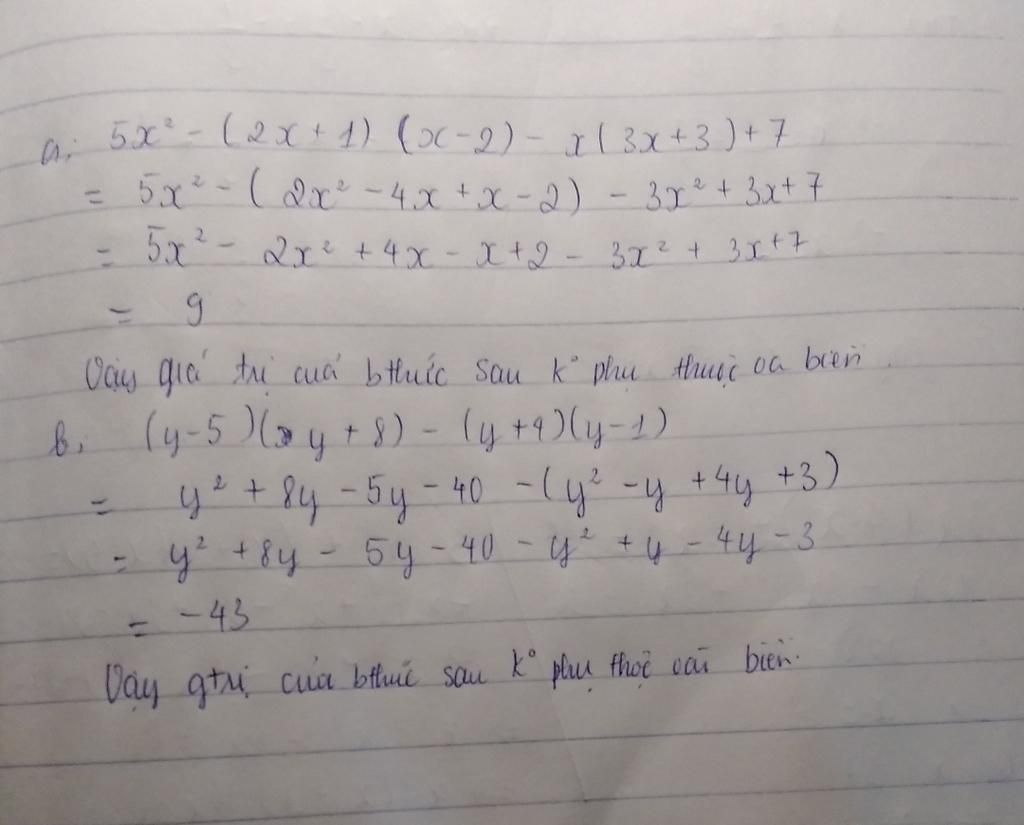 a, 5x² - (2x + 1) (x - 2) - x(3x + 3) + 7
= 5x² - (2x² - 4x + x - 2) - 3x² + 3x + 7
= 5x² - 2x² + 4x - x + 2 - 3x² + 3x + 7
= 9
Vậy giá trị của bthức sau k° phụ thuộc vào biến.
b, (y - 5)(y + 8) - (y + 4)(y - 1)
= y² + 8y - 5y - 40 - (y² - y + 4y + 3)
= y² + 8y - 5y - 40 - y² + y - 4y - 3
= -43
Vậy gtrị của bthức sau k° phụ biến.